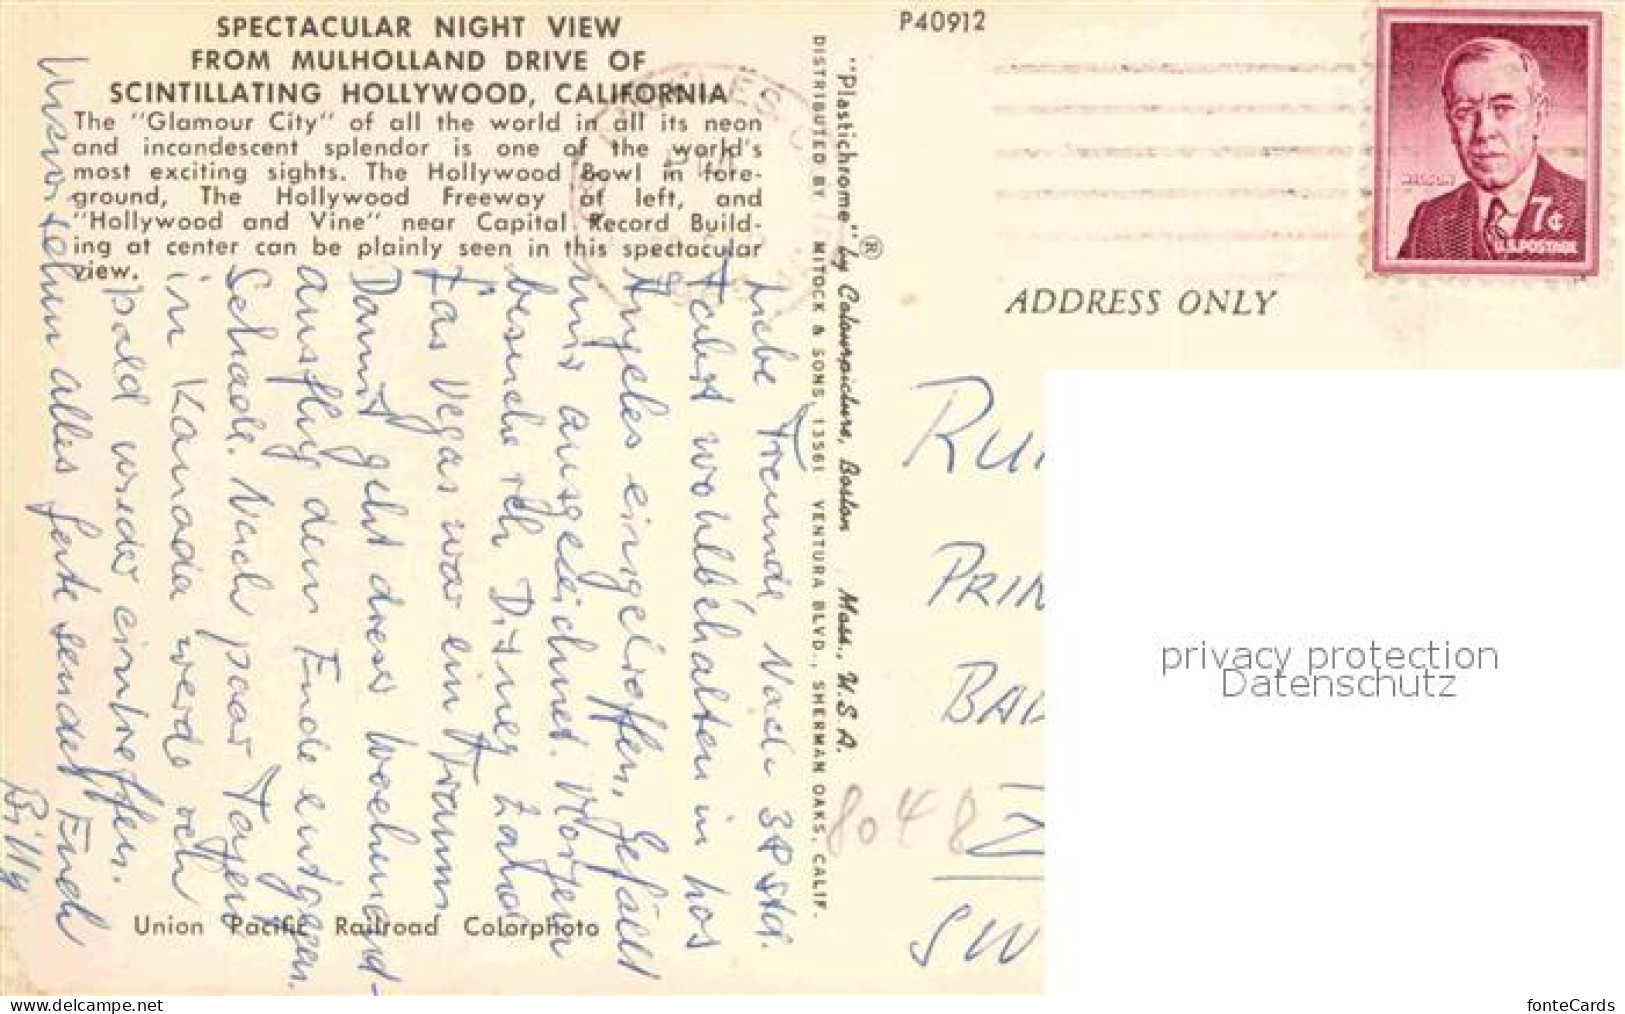 SPECTACULAR NIGHT VIEW
FROM MULHOLLAND DRIVE OF
SCINTILLATING HOLLYWOOD, CALIFORNIA
The "Glamour City" of all the world in all its neon
and incandescent splendor is one of the world's
most exciting sights. The Hollywood Bowl in fore-
ground, The Hollywood Freeway at left, and
"Hollywood and Vine" near Capital Record Build-
ing at center can be plainly seen in this spectacular
view.
Liebe Freunde, Nach 38 Std.
Fahrt wohlbehalten in Los
Angeles eingetroffen. Gefällt
mir ausgezeichnet. Morgen
besuche ich Disney Land
Las Vegas war ein Traum
Damit geht dieser Wochenend-
ausflug dem Ende entgegen.
Schade. Nach paar Tagen
in Kanada werde ich
bald wieder eintreffen.
alles Gute sendet Euch
Billy
Union Pacific Railroad Colorphoto
"Plastichrome" ® by Colourpicture, Boston Mass., U.S.A.
DISTRIBUTED BY MITOCK & SONS, 13561 VENTURA BLVD., SHERMAN OAKS, CALIF.
P40912
WILSON
7¢
U.S. POSTAGE
ADDRESS ONLY
RU
PRIN
BAD
8048
SW
privacy protection
Datenschutz
www.delcampe.net
fonteCards